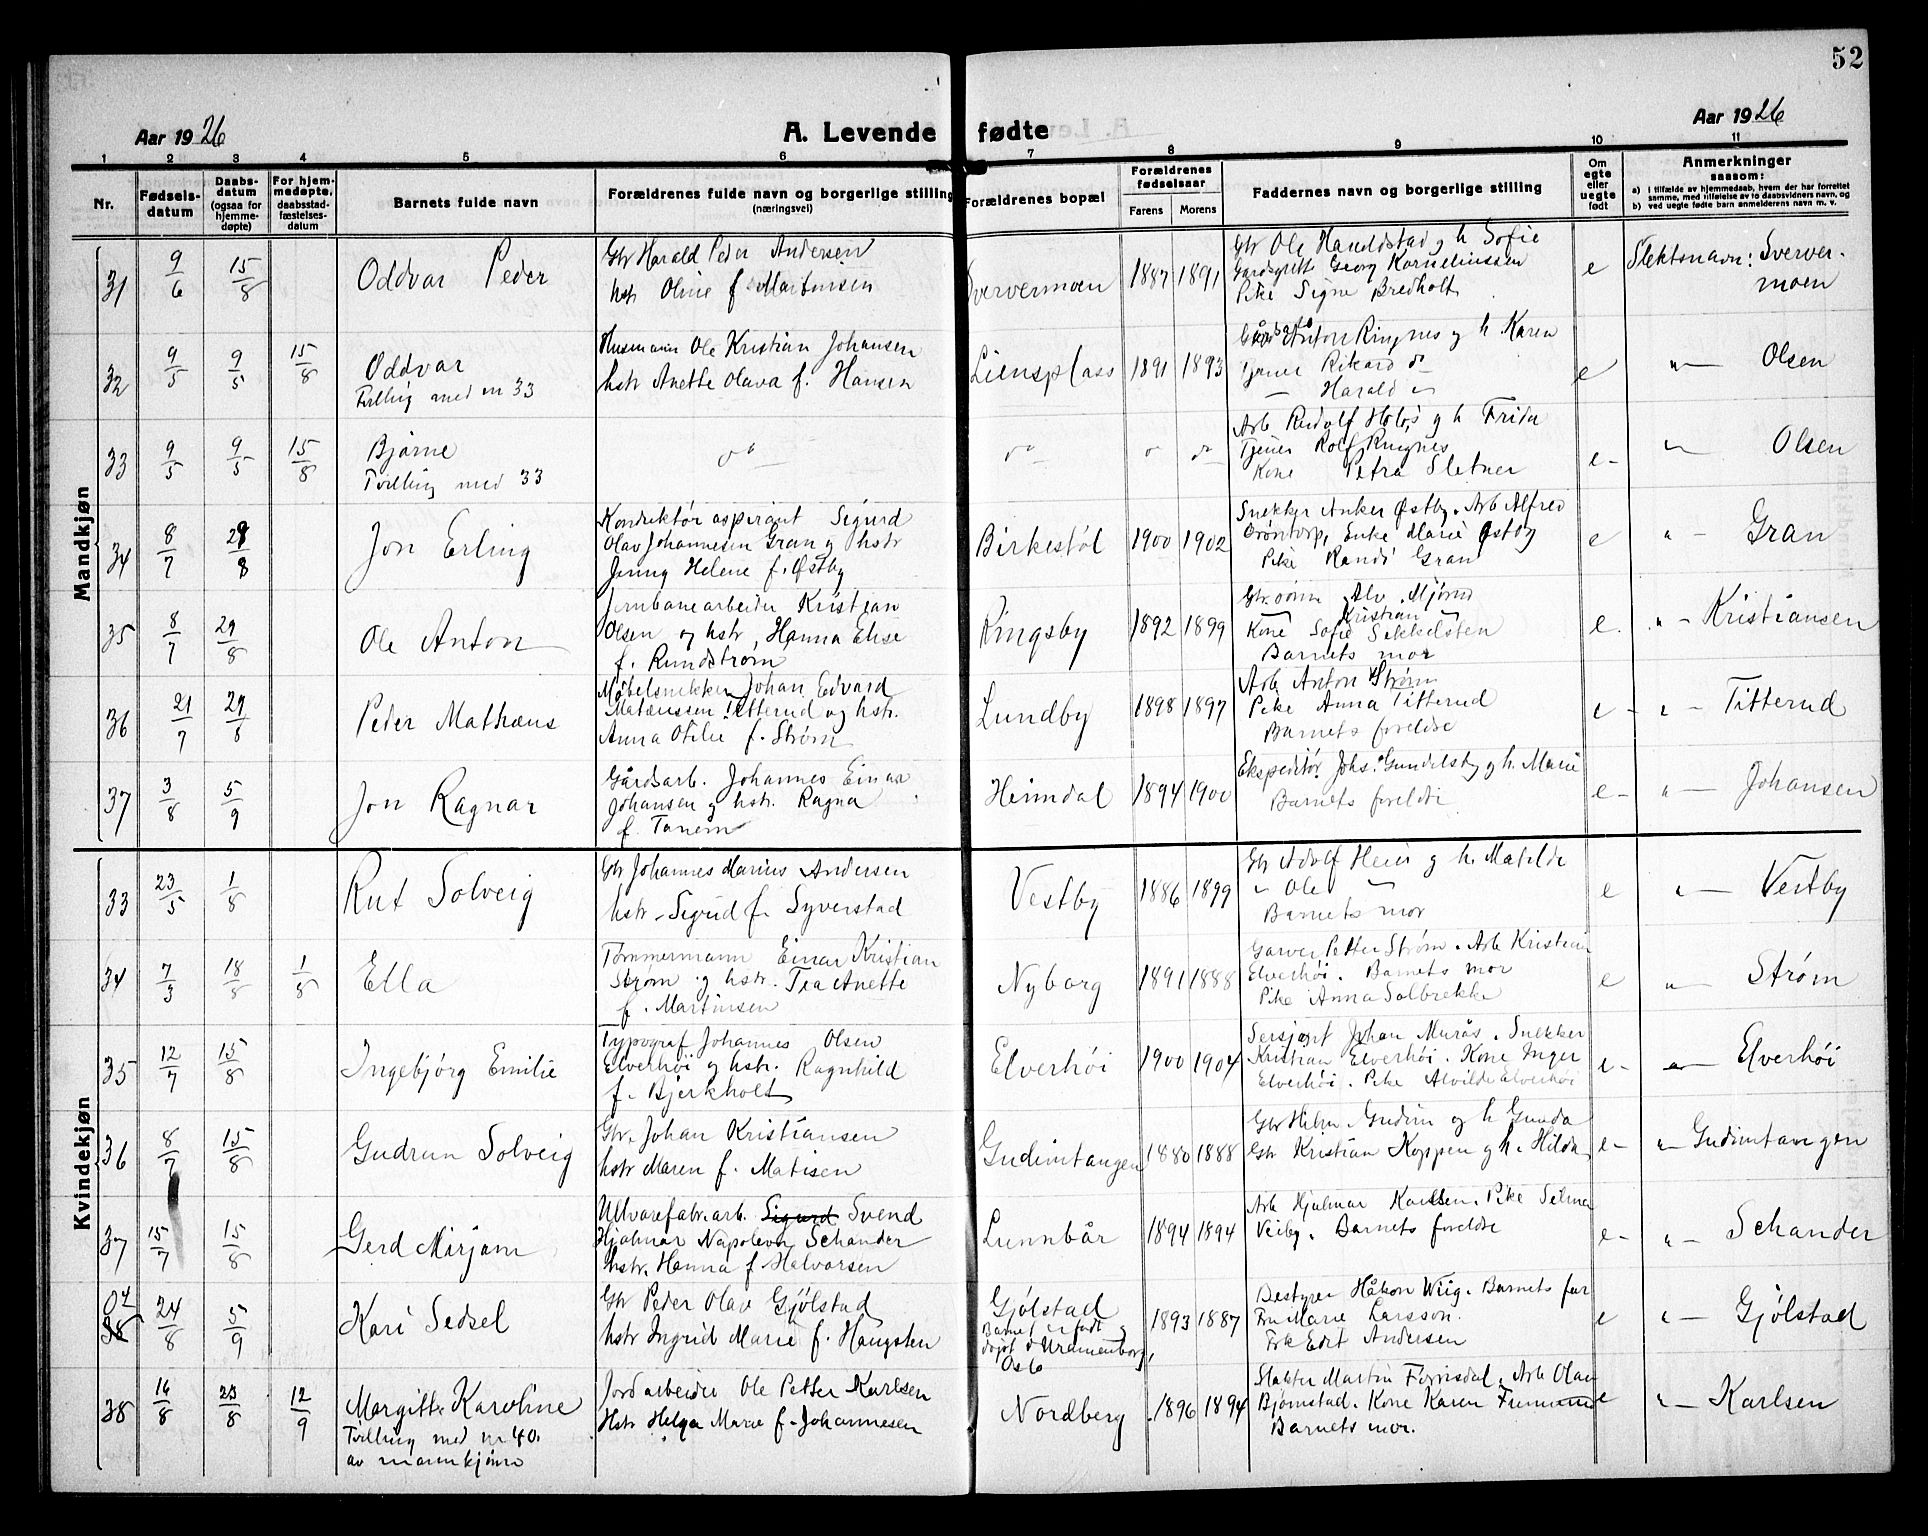 52
Aar 1926
A. Levende fødte
Aar 1926
1 2 3 4 5 6 7 8 9 10 11
Nr.
Fødsels-datum
Daabs-datum (ogsaa for hjemme-døpte)
For hjem-medøpte, daabsstad-fæstelses-datum
Barnets fulde navn
Forældrenes fulde navn og borgerlige stilling (næringsvei)
Forældrenes bopæl
Forældrenes fødselsaar
Farens Morens
Faddernes navn og borgerlige stilling
Om egte eller uegte født
Anmerkninger saasom:
a) i tilfælde av hjemmedaab, hvem der har forrettet samme, med tilføielse av to daabsvidners navn, og
b) ved uegte fødte barn anmelderens navn m. v.
Mandkjøn
31 9/6 15/8 Oddvar Peder
Gbr Harald Peder Andersen
hstr Oline f. Martinsen
Sververmoen 1887 1891
Gbr Ole Haneldstad og h. Sofie
Gardsgutt Georg Kornelinssen
Pike Signe Bredholt
e Slektsnavn: Sverver-
moen
32 9/5 9/5 15/8 Oddvar
Tvilling med nr 33
Husmann Ole Kristian Johansen
hstr Anette Olava f. Hansen
Liensplass 1891 1893
Anton Ringnes og h. Karen
Tjener Rikard do
— Harald "
e " — Olsen
33 9/5 9/5 15/8 Bjarne
Tvilling med 33
do
do " do
Arb Rudolf Holos og h Frida
Tjener Rolf Ringnes
Kone Petra Sletner
e - " — Olsen
34 8/7 29/8 Jon Erling
Konduktør aspirant Sigurd
Olav Johannesen Gran og hstr
Jenny Helene f. Østby
Birkestøl 1900 1902
Snekker Anker Østby. Arb Alfred
Grøntorp, Enke Marie Østby
Pike Randi Gran
e " — Gran
35 8/7 29/8 Ole Anton
Jernbanearbeider Kristian
Olsen og hstr. Hanna Elise
f. Rundstrøm
Ringsby 1892 1899
Gbr.sønn Alv. Mjørud
— Kristian "
Kone Sofie Sikkelsten
Barnets mor
e. " - Kristiansen
36 21/7 29/8 Peder Mathæus
Møbelsnekker Johan Edvard
Matæussen Titterud og hstr.
Anna Otilie f. Strøm
Lundby 1898 1897
Arb. Anton Strøm
Pike Anna Titterud
Barnets foreldre
e - " - Titterud
37 3/8 5/9 Jon Ragnar
Gårdsarb. Johannes Einar
Johansen og hstr. Ragna
f. Tanem
Heimdal 1894 1900
Ekspeditør Johs. Gundelsby og h. Marie
Barnets foreldre
e - " — Johansen
Kvindekjøn
33 23/5 1/8 Rut Solveig
Gbr Johannes Marius Andersen
hstr - Sigrid f. Syverstad
Vestby 1886 1899
Gbr Adolf Heier og h. Matilde
" Ole "
Barnets mor
e " — Vestby
34 7/3 18/5 1/8 Ella
Tømmermann Einar Kristian
Strøm og hstr. Tea Anette
f. Martinsen
Nyborg 1891 1888
Garver Petter Strøm. Arb Kristian
Elverhøi. Barnets mor
Pike Anna Solbrekke
e " — Strøm
35 12/7 15/8 Ingebjørg Emilie
Typograf Johannes Olsen
Elverhøi og hstr. Ragnhild
f. Bjerkholt
Elverhøi 1900 1904
Sersjant Johan Murås. Snekker
Kristian Elverhøi. Kone Inger
Elverhøi. Pike Alvilde Elverhøi
e - " — Elverhøi
36 8/7 15/8 Gudrun Solveig
Gbr. Johan Kristiansen
hstr Maren f. Matisen
Gudimtangen 1880 1888
Gbr Hilm. Gudim og h Gunda
Gbr Kristian Koppen og h. Hilda
e - " Gudimtangen
37 15/7 15/8 Gerd Mirjam
Ullvarefabr.arb. Sigurd Svend
Hjalmar Napoleon Schander
hstr. Hanna f Halvorsen
Lunnbår 1894 1894
Arb Hjalmar Karlsen. Pike Selma
Veiby. Barnets foreldre
e - " — Schander
04 38 24/8 5/9 Kari Sedsel
Gbr Peder Olav Gjølstad
hstr Ingrid Marie f. Haugsten
Gjølstad
Barnet er født og
døpt i Uranienborg,
Oslo
1893 1887
Bestyrer Håkon Wiig. Barnets far
Fru Marie Larsson.
Frk Edit Andersen
e " — Gjølstad
38 16/8 23/8 12/9 Margitte Karoline
Tvilling med nr 40.
av mannkjønn
Jordarbeider Ole Petter Karlsen
Hstr Helga Marie f. Johannesen
Nordberg 1896 1894
Slakter Martin Fornsdal. Arb Olav
Bjørnstad. Kone Karen
Barnets mor.
e " — Karlsen